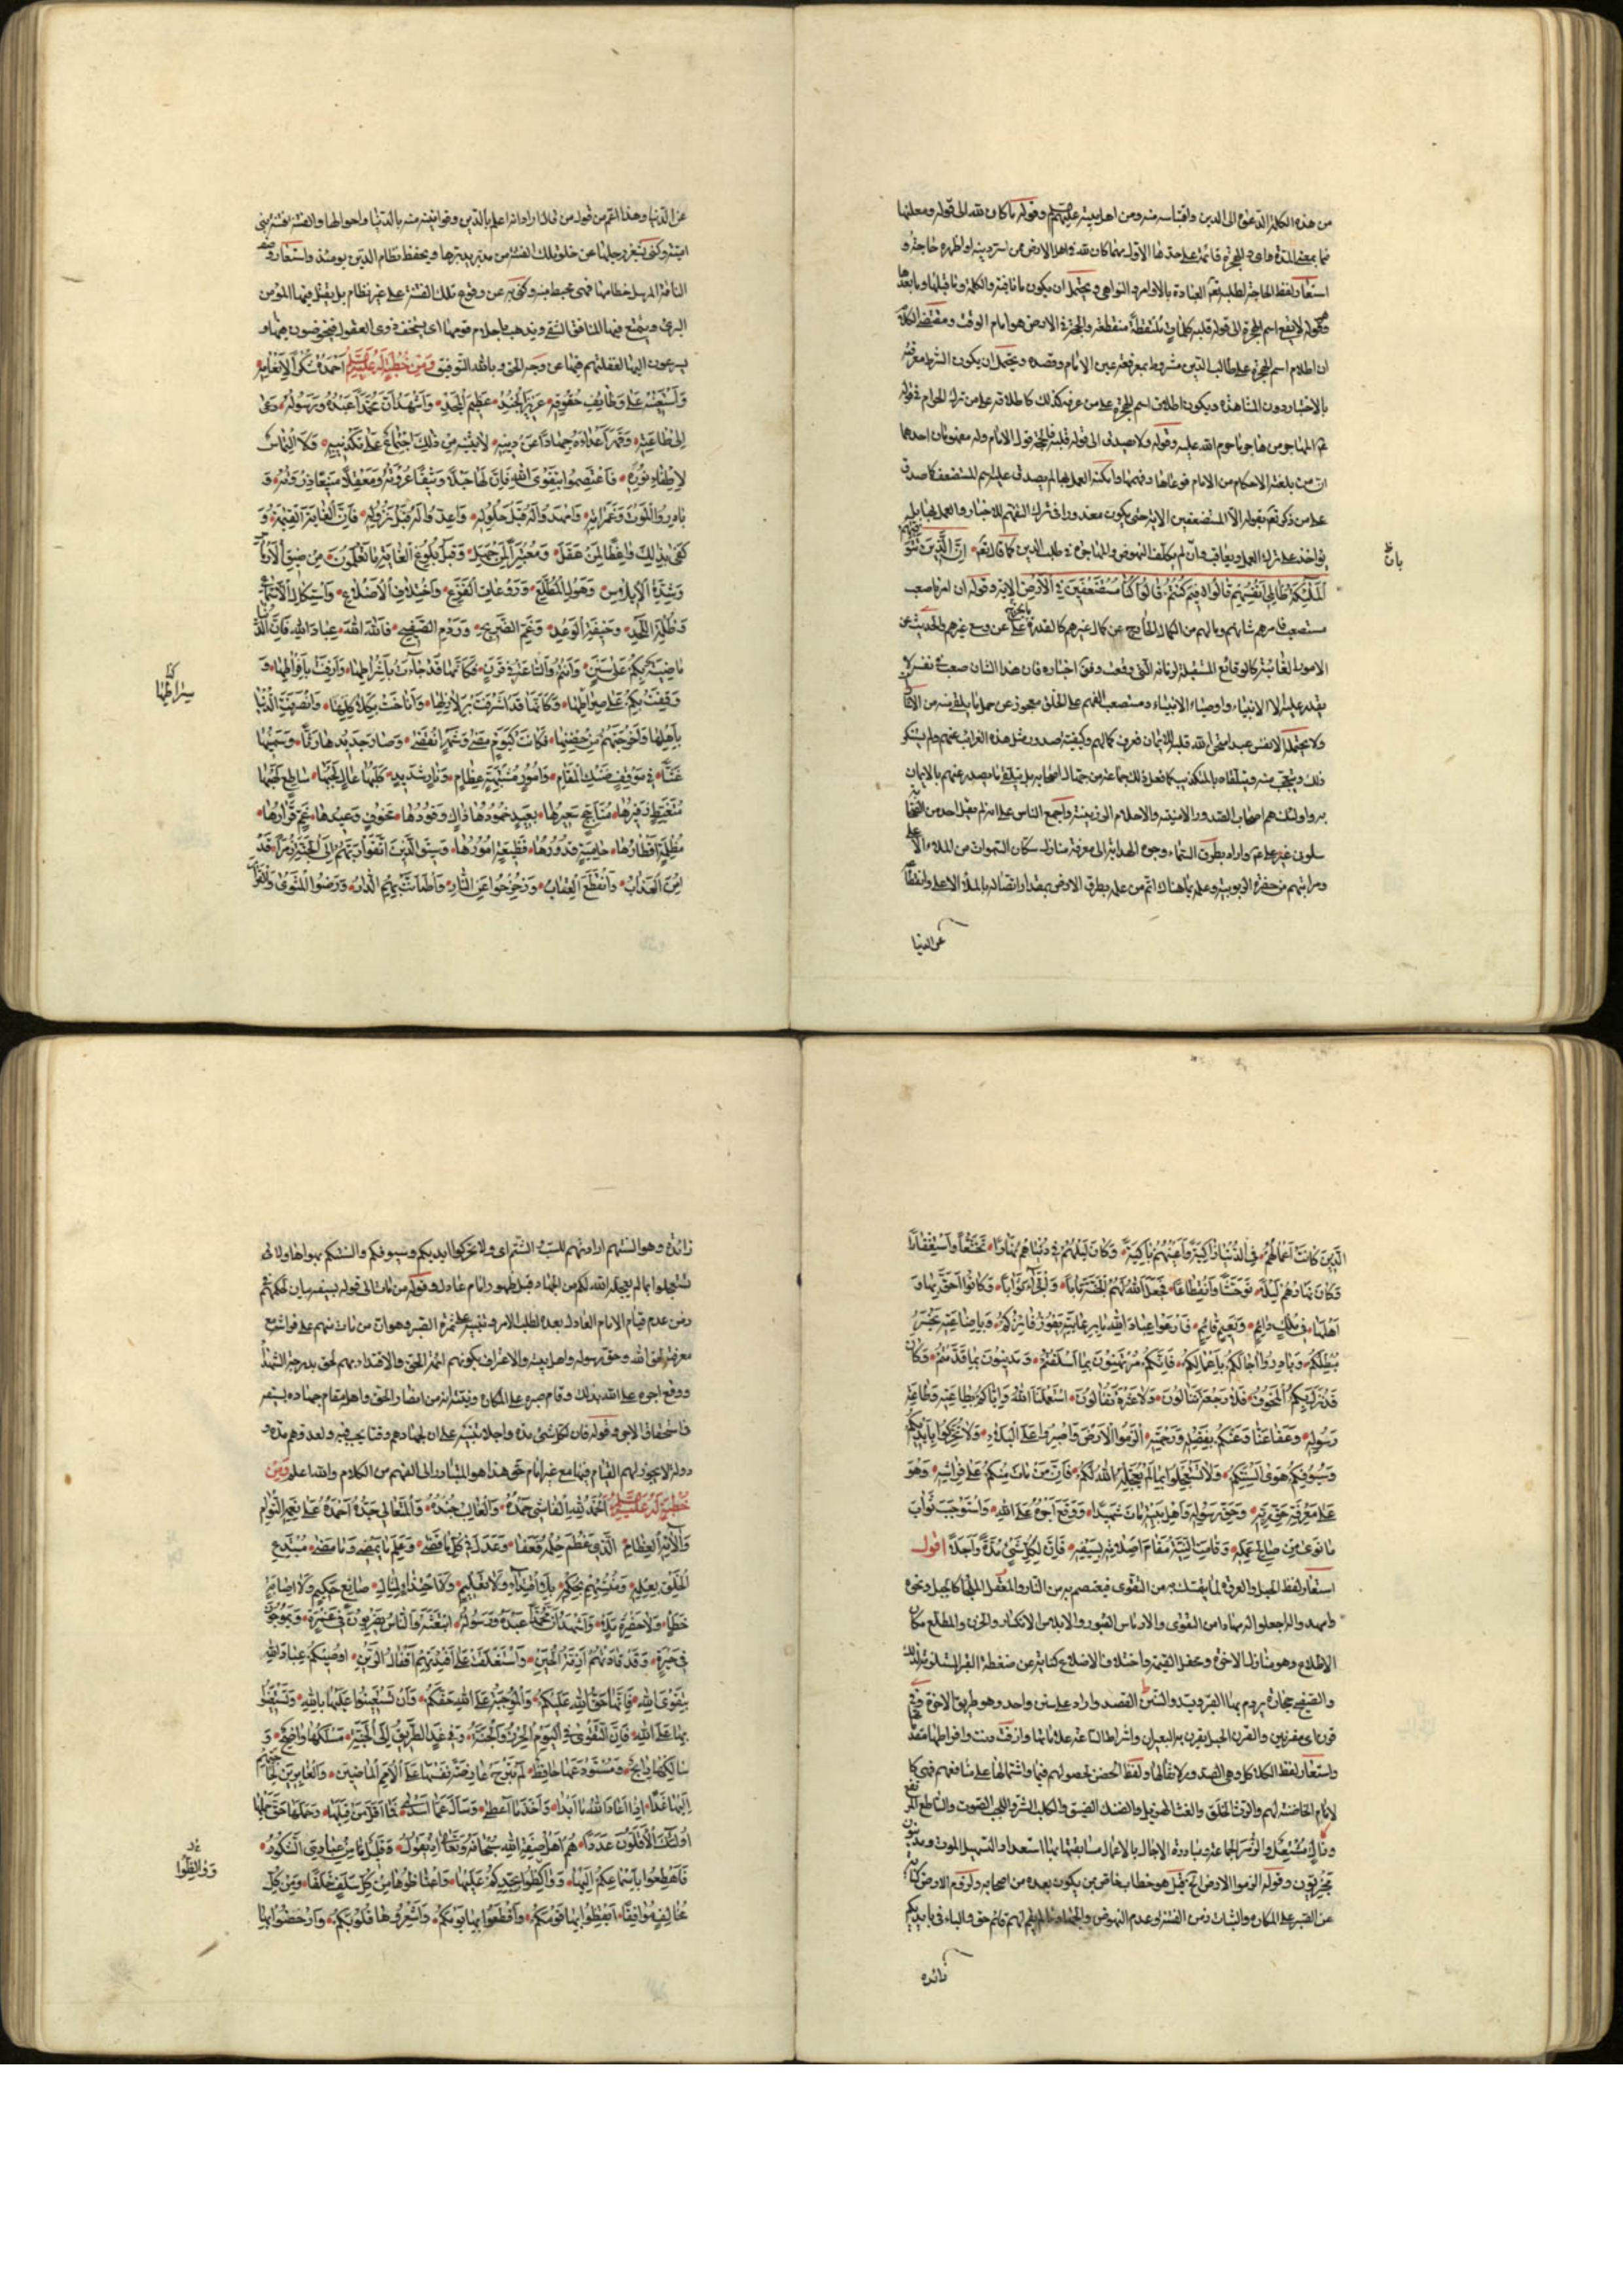 من هذه الكلمة الدعوة الى الدين واقتباسه منه ومن اهل بيته عليهم السلم وقوله ما كان لله الى قوله ومعلنها
استعار لفظ الحاجة لطلبه تعالى العبادة بالاوامر والنواهى ويحتمل ان يكون ما نافية والكلمة وما قبلها وما بعدها
وقوله لا يقع اسم الهجرة الى قوله قلبه كلمات ملتقطة منقطعة والحجة فى الارض هو امام الوقت ومقتضى الكلمة
ان اطلاق اسم الهجرة على طالب الدين مشروط بمعرفته عين الامام وقصده ويحتمل ان يكون الشرط معرفته
بالاخبار دون المشاهدة ويكون اطلاق اسم الهجرة على من عرفه كذلك كاطلاقه على من ترك الحرام فى قوله
عم المهاجر من هاجر ما حرم الله عليه وقوله ولا يصدق الى قوله قلبه فالحجة قول الامام وله معنيان احدهما
ان من بلغته الاحكام من الامام فوعاها وفهمها وامكنه العمل بها لم يصدق عليه اسم المستضعف كما صدق
على من ذكر تعم بقوله الا المستضعفين الاية حتى يكون معذورا فى ترك التفهم للاخبار والعمل بها بل
يؤاخذ على ترك العمل ويعاقب وان لم يكلف النهوض والمهاجرة فى طلب الدين كما قال تعم اِنَّ الَّذِينَ تَوَفّٰيهُمُ
اَلْمَلٰئِكَةُ ظَالِمِى اَنْفُسِهِمْ قَالُوا فِيمَ كُنْتُمْ قَالُوا كُنَّا مُسْتَضْعَفِينَ فِى الْاَرْضِ الاية وقوله ان امرنا صعب
مستصعب فامرهم شانهم وما لهم من الكمال الخارج عن كمال غيرهم كالقدرة على ما يخرج عن وسع غيرهم والحديث عن
الامور الغائبة كالوقائع المستقبلة لزمانه التى وقعت وفق اخباره فان هذا الشان صعب فى نفسه لا
يقدر عليه الا الانبياء واوصياء الانبياء ومستصعب الفهم على الخلق معجوز عن حمل ما يلقى منه من الاشارات
ولا يحتمله الا نفس عبد امتحن الله قلبه للايمان فعرف كمالهم وكيفية صدور مثل هذه الغرائب عنهم ولم يستنكر
ذلك ويتعجب منه ويتلقاه بالتكذيب كما فعل ذلك جماعة من جهال اصحابه بل يتلقى ما يصدر عنهم بالايمان
به واولئك هم اصحاب الصدور الامينة والاحلام الرزينة واجمع الناس على انه لم يقل احد من الصحابة
سلونى غير على عم واراد بطرق السماء وجوه الهداية الى معرفة منازل سكان السموات من الملاء الاعلى
ومراتبهم من حضرة الربوبية وعلمه بما هناك اتم من علمه بطرق الارض بمقدار اتصاله بالملاء الاعلى وانقطاعه
بان
عن الدنيا
عن الدنيا وهذا اتم من قول من قال اراد انه اعلم بالدين وقوانينه منه بالدنيا واحوالها والفتنة فتنة بنى
امية وكنى بشغر رجلها عن خلو تلك الفتنة من مدبر يدبرها ويحفظ نظام الدين يومئذ واستعار وصف
الناقة المرسل خطامها فهى تخبط فيه وكنى به عن وقوع تلك الفتنة على غير نظام بل يقتل فيها المؤمن
البرئ ويتمتع فيها المنافق الشقى ويذهب باحلام قومها اى يستخف ذوى العقول فيخوضون فيها و
يسرعون اليها لغفلتهم فيها عن وجه الحق وبالله التوفيق وَمِنْ خُطْبَةٍ لَهُ عَلَيْهِ السَّلٰمُ اَحْمَدُهُ شُكْرًا لِاِنْعَامِهِ
وَاَسْتَعِينُهُ عَلَى وَظَائِفِ حُقُوقِهِ عَزِيزُ الْجُنْدِ عَظِيمُ الْمَجْدِ وَاَشْهَدُ اَنَّ مُحَمَّدًا عَبْدُهُ وَرَسُولُهُ دَعَى
اِلَى طَاعَتِهِ وَقَهَرَ اَعْدَاءَهُ جِهَادًا عَنْ دِينِهِ لَا يَثْنِيهِ عَنْ ذٰلِكَ اجْتِمَاعٌ عَلَى تَكْذِيبِهِ وَلَا الْتِمَاسٌ
لِاِطْفَاءِ نُورِهِ فَاعْتَصِمُوا بِتَقْوَى اللهِ فَاِنَّ لَهَا حَبْلًا وَثِيقًا عُرْوَتُهُ وَمَعْقِلًا مَنِيعًا ذِرْوَتُهُ وَ
بَادِرُوا الْمَوْتَ وَغَمَرَاتِهِ وَامْهَدُوا لَهُ قَبْلَ حُلُولِهِ وَاَعِدُّوا لَهُ قَبْلَ نُزُولِهِ فَاِنَّ الْغَايَةَ الْقِيٰمَةُ وَ
كَفَى بِذَلِكَ وَاعِظًا لِمَنْ عَقَلَ وَمُعْتَبَرًا لِمَنْ جَهِلَ وَقَبْلَ بُلُوغِ الْغَايَةِ مَا تَعْلَمُونَ مِنْ ضِيقِ الْاَرْمَاسِ
وَشِدَّةِ الْاِبْلَاسِ وَهَوْلِ الْمُطَّلَعِ وَرَوْعَاتِ الْفَزَعِ وَاخْتِلَافِ الْاَضْلَاعِ وَاسْتِكَاكِ الْاَسْمَاعِ
وَظُلْمَةِ اللَّحْدِ وَخِيفَةِ الْوَعْدِ وَغَمِّ الضَّرِيحِ وَرَدْمِ الصَّفِيحِ فَاللهَ اللهَ عِبَادَ اللهِ فَاِنَّ الدُّنْيَا
مَاضِيَةٌ بِكُمْ عَلَى سَنَنٍ وَاَنْتُمْ وَالسَّاعَةُ فِى قَرَنٍ فَكَاَنَّهَا قَدْ جَاءَتْ بِاَشْرَاطِهَا وَاَزِفَتْ بِاَفْرَاطِهَا وَ
وَقَفَتْ بِكُمْ عَلَى صِرَاطِهَا وَكَاَنَّهَا قَدْ اَشْرَفَتْ بِزَلَازِلِهَا وَاَنَاخَتْ بِكَلَاكِلِهَا وَانْصَرَمَتِ الدُّنْيَا
بِاَهْلِهَا وَاَخْرَجَتْهُمْ مِنْ حِضْنِهَا فَكَانَتْ كَيَوْمٍ مَضَى وَشَهْرٍ انْقَضَى وَصَارَ جَدِيدُهَا رَثًّا وَسَمِينُهَا
غَثًّا فِى مَوْقِفٍ ضَنْكِ الْمَقَامِ وَاُمُورٍ مُشْتَبِهَةٍ عِظَامٍ وَنَارٍ شَدِيدٍ كَلَبُهَا عَالٍ لَجَبُهَا سَاطِعٍ لَهَبُهَا
مُتَغَيِّظٍ زَفِيرُهَا مُتَاَجِّجٍ سَعِيرُهَا بَعِيدٍ خُمُودُهَا ذَاكٍ وَقُودُهَا مَخُوفٍ وَعِيدُهَا عَمٍ قَرَارُهَا
مُظْلِمَةٍ اَقْطَارُهَا حَامِيَةٍ قُدُورُهَا فَظِيعَةٍ اُمُورُهَا وَسِيقَ الَّذِينَ اتَّقَوْا رَبَّهُمْ اِلَى الْجَنَّةِ زُمَرًا قَدْ
اُمِنَ الْعَذَابُ وَانْقَطَعَ الْعِتَابُ وَزُحْزِحُوا عَنِ النَّارِ وَاطْمَاَنَّتْ بِهِمُ الدَّارُ وَرَضُوا الْمَثْوَى وَالْقَرَارَ
الَّذِينَ كَانَتْ اَعْمَالُهُمْ فِى الدُّنْيَا زَاكِيَةً وَاَعْيُنُهُمْ بَاكِيَةً وَكَانَ لَيْلُهُمْ فِى دُنْيَاهُمْ نَهَارًا تَخَشُّعًا وَاسْتِغْفَارًا
وَكَانَ نَهَارُهُمْ لَيْلًا تَوَحُّشًا وَانْقِطَاعًا فَجَعَلَ اللهُ لَهُمُ الْجَنَّةَ مَاٰبًا وَالْجَزَاءَ ثَوَابًا وَكَانُوا اَحَقَّ بِهَا وَ
اَهْلَهَا فِى مُلْكٍ دَائِمٍ وَنَعِيمٍ قَائِمٍ فَارْعَوْا عِبَادَ اللهِ مَا بِرِعَايَتِهِ يَفُوزُ فَائِزُكُمْ وَبِاِضَاعَتِهِ يَخْسَرُ
مُبْطِلُكُمْ وَبَادِرُوا اٰجَالَكُمْ بِاَعْمَالِكُمْ فَاِنَّكُمْ مُرْتَهَنُونَ بِمَا اَسْلَفْتُمْ وَمَدِينُونَ بِمَا قَدَّمْتُمْ وَكَاَنْ
قَدْ نَزَلَ بِكُمُ الْمَخُوفُ فَلَا رَجْعَةً تَنَالُونَ وَلَا عَثْرَةً تُقَالُونَ اسْتَعْمَلَنَا اللهُ وَاِيَّاكُمْ بِطَاعَتِهِ وَطَاعَةِ
رَسُولِهِ وَعَفَا عَنَّا وَعَنْكُمْ بِفَضْلِ رَحْمَتِهِ الْزَمُوا الْاَرْضَ وَاصْبِرُوا عَلَى الْبَلَاءِ وَلَا تُحَرِّكُوا بِاَيْدِيكُمْ
وَسُيُوفِكُمْ هَوَى اَلْسِنَتِكُمْ وَلَا تَسْتَعْجِلُوا بِمَا لَمْ يُعَجِّلْهُ اللهُ لَكُمْ فَاِنَّ مَنْ مَاتَ مِنْكُمْ عَلَى فِرَاشِهِ وَهُوَ
عَلَى مَعْرِفَةِ حَقِّ رَبِّهِ وَحَقِّ رَسُولِهِ وَاَهْلِ بَيْتِهِ مَاتَ شَهِيدًا وَوَقَعَ اَجْرُهُ عَلَى اللهِ وَاسْتَوْجَبَ ثَوَابَ
مَا نَوَى مِنْ صَالِحِ عَمَلِهِ وَقَامَتِ النِّيَّةُ مَقَامَ اِصْلَاتِهِ بِسَيْفِهِ فَاِنَّ لِكُلِّ شَىْءٍ مُدَّةً وَاَجَلًا اقول
استعار لفظ الحبل والعروة لما يتمسك به من التقوى فيعتصم به من النار والمعقل الملجأ كالجبل ونحوه
وامهدوا له اجعلوا له مهادا من التقوى والارماس القبور والابلاس الانكسار والحزن والمطلع مكان
الاطلاع وهو منازل الاخرة وعقل القيمة واختلاف الاضلاع كناية عن ضغطة القبر
والصفيح حجارة يردم بها القبر والسنن القصد واراد على سنن واحد وهو طريق الاخرة
قرن اى مقرونين والقرن الحبل يقرن به البعيران واشراط الساعة علاماتها وازفت دنت وافراطها مقدماتها
واستعار لفظ الكلاكل وهى الصدور لاثقالها ولفظ الحضن لحصولهم فيها واشتمالها على منافعهم فهى كا
لام الحاضنة لهم والرث الخلق والغث الهزيل والضنك الضيق والكلب الشر واللجب الصوت والساطع المرتفع
تجزيون وقوله الزموا الارض الخ قيل هو خطاب خاص بمن يكون بعده من اصحابه ولزوم الارض كناية
عن الصبر على المكاره والثبات زمن الفتنة وعدم النهوض والجهاد ما لم يقم لهم قائم حق والباء فى بايديكم
زائدة
زائدة وهوى السنتهم ارادتهم للسب والشتم اى ولا تحركوا ايديكم وسيوفكم والسنتكم بهواها ولا
تستعجلوا بما لم يعجله الله لكم من الجهاد قبل ظهور امام عادل وقوله من مات الى قوله بسيفه بيان لحكمهم
زمن عدم قيام الامام العادل بعده لطلب الامر وتنبيه على ثمرة الصبر وهو ان من مات منهم على فراشه مع
معرفته بحق الله وحق رسوله واهل بيته والاعتراف بكونهم ائمة الحق والاقتداء بهم لحق بدرجة الشهداء
ووقع اجره على الله بذلك وقام صبره على المكاره ونيته انه من انصار الحق واهله مقام جهاده بسيفه
فى استحقاق الاجر وقوله فان لكل شئ مدة واجلا تنبيه على ان لجهادهم وقتا يجب فيه ولعدوهم مدة و
دولة لا يجوز لهم القيام فيها مع غير امام حق هذا هو المتبادر الى الفهم من الكلام والله اعلم وَمِنْ
خُطْبَةٍ لَهُ عَلَيْهِ السَّلٰمُ اَلْحَمْدُ لِلّٰهِ الْفَاشِى حَمْدُهُ وَالْغَالِبِ جُنْدُهُ وَالْمُتَعَالِى جَدُّهُ اَحْمَدُهُ عَلَى نِعَمِهِ التُّوَامِ
وَاٰلَائِهِ الْعِظَامِ الَّذِى عَظُمَ حِلْمُهُ فَعَفَا وَعَدَلَ فِى كُلِّ مَا قَضَى وَعَلِمَ مَا يَمْضِى وَمَا مَضَى مُبْتَدِعِ
الْخَلْقِ بِعِلْمِهِ وَمُنْشِئِهِمْ بِحُكْمِهِ بِلَا اقْتِدَاءٍ وَلَا تَعْلِيمٍ وَلَا احْتِذَاءٍ لِمِثَالِ صَانِعٍ حَكِيمٍ وَلَا اِصَابَةِ
خَطَاٍ وَلَا حَضْرَةِ مَلَاٍ وَاَشْهَدُ اَنَّ مُحَمَّدًا عَبْدُهُ وَرَسُولُهُ ابْتَعَثَهُ وَالنَّاسُ يَضْرِبُونَ فِى غَمْرَةٍ وَيَمُوجُونَ
فِى حَيْرَةٍ وَقَدْ قَادَتْهُمْ اَزِمَّةُ الْحَيْنِ وَاسْتَغْلَقَتْ عَلَى اَفْئِدَتِهِمْ اَقْفَالُ الرَّيْنِ اُوصِيكُمْ عِبَادَ اللهِ
بِتَقْوَى اللهِ فَاِنَّهَا حَقُّ اللهِ عَلَيْكُمْ وَالْمُوجِبَةُ عَلَى اللهِ حَقَّكُمْ وَاَنْ تَسْتَعِينُوا عَلَيْهَا بِاللهِ وَتَسْتَعِينُوا
بِهَا عَلَى اللهِ فَاِنَّ التَّقْوَى فِى الْيَوْمِ الْحِرْزُ وَالْجُنَّةُ وَفِى غَدٍ الطَّرِيقُ اِلَى الْجَنَّةِ مَسْلَكُهَا وَاضِحٌ وَ
سَالِكُهَا رَابِحٌ وَمُسْتَوْدَعُهَا حَافِظٌ لَمْ تَبْرَحْ عَارِضَةً نَفْسَهَا عَلَى الْاُمَمِ الْمَاضِينَ وَالْغَابِرِينَ لِحَاجَتِهِمْ
اِلَيْهَا غَدًا اِذَا اَعَادَ اللهُ مَا اَبْدَا وَاَخَذَ مَا اَعْطَى وَسَاَلَ عَمَّا اَسْدَى فَمَا اَقَلَّ مَنْ قَبِلَهَا وَحَمَلَهَا حَقَّ حَمْلِهَا
اُولٰئِكَ الْاَقَلُّونَ عَدَدًا هُمْ اَهْلُ صِفَةِ اللهِ سُبْحَانَهُ وَتَعَالَى اِذْ يَقُولُ وَقَلِيلٌ مِنْ عِبَادِىَ الشَّكُورُ
فَاَهْطِعُوا بِاَسْمَاعِكُمْ اِلَيْهَا وَوَاكِظُوا بِجِدِّكُمْ عَلَيْهَا وَاعْتَاضُوهَا مِنْ كُلِّ سَلَفٍ خَلَفًا وَمِنْ كُلِّ
مُخَالِفٍ مُوَافِقًا اَيْقِظُوا بِهَا نَوْمَكُمْ وَاقْطَعُوا بِهَا يَوْمَكُمْ وَاَشْعِرُوهَا قُلُوبَكُمْ وَارْحَضُوا بِهَا